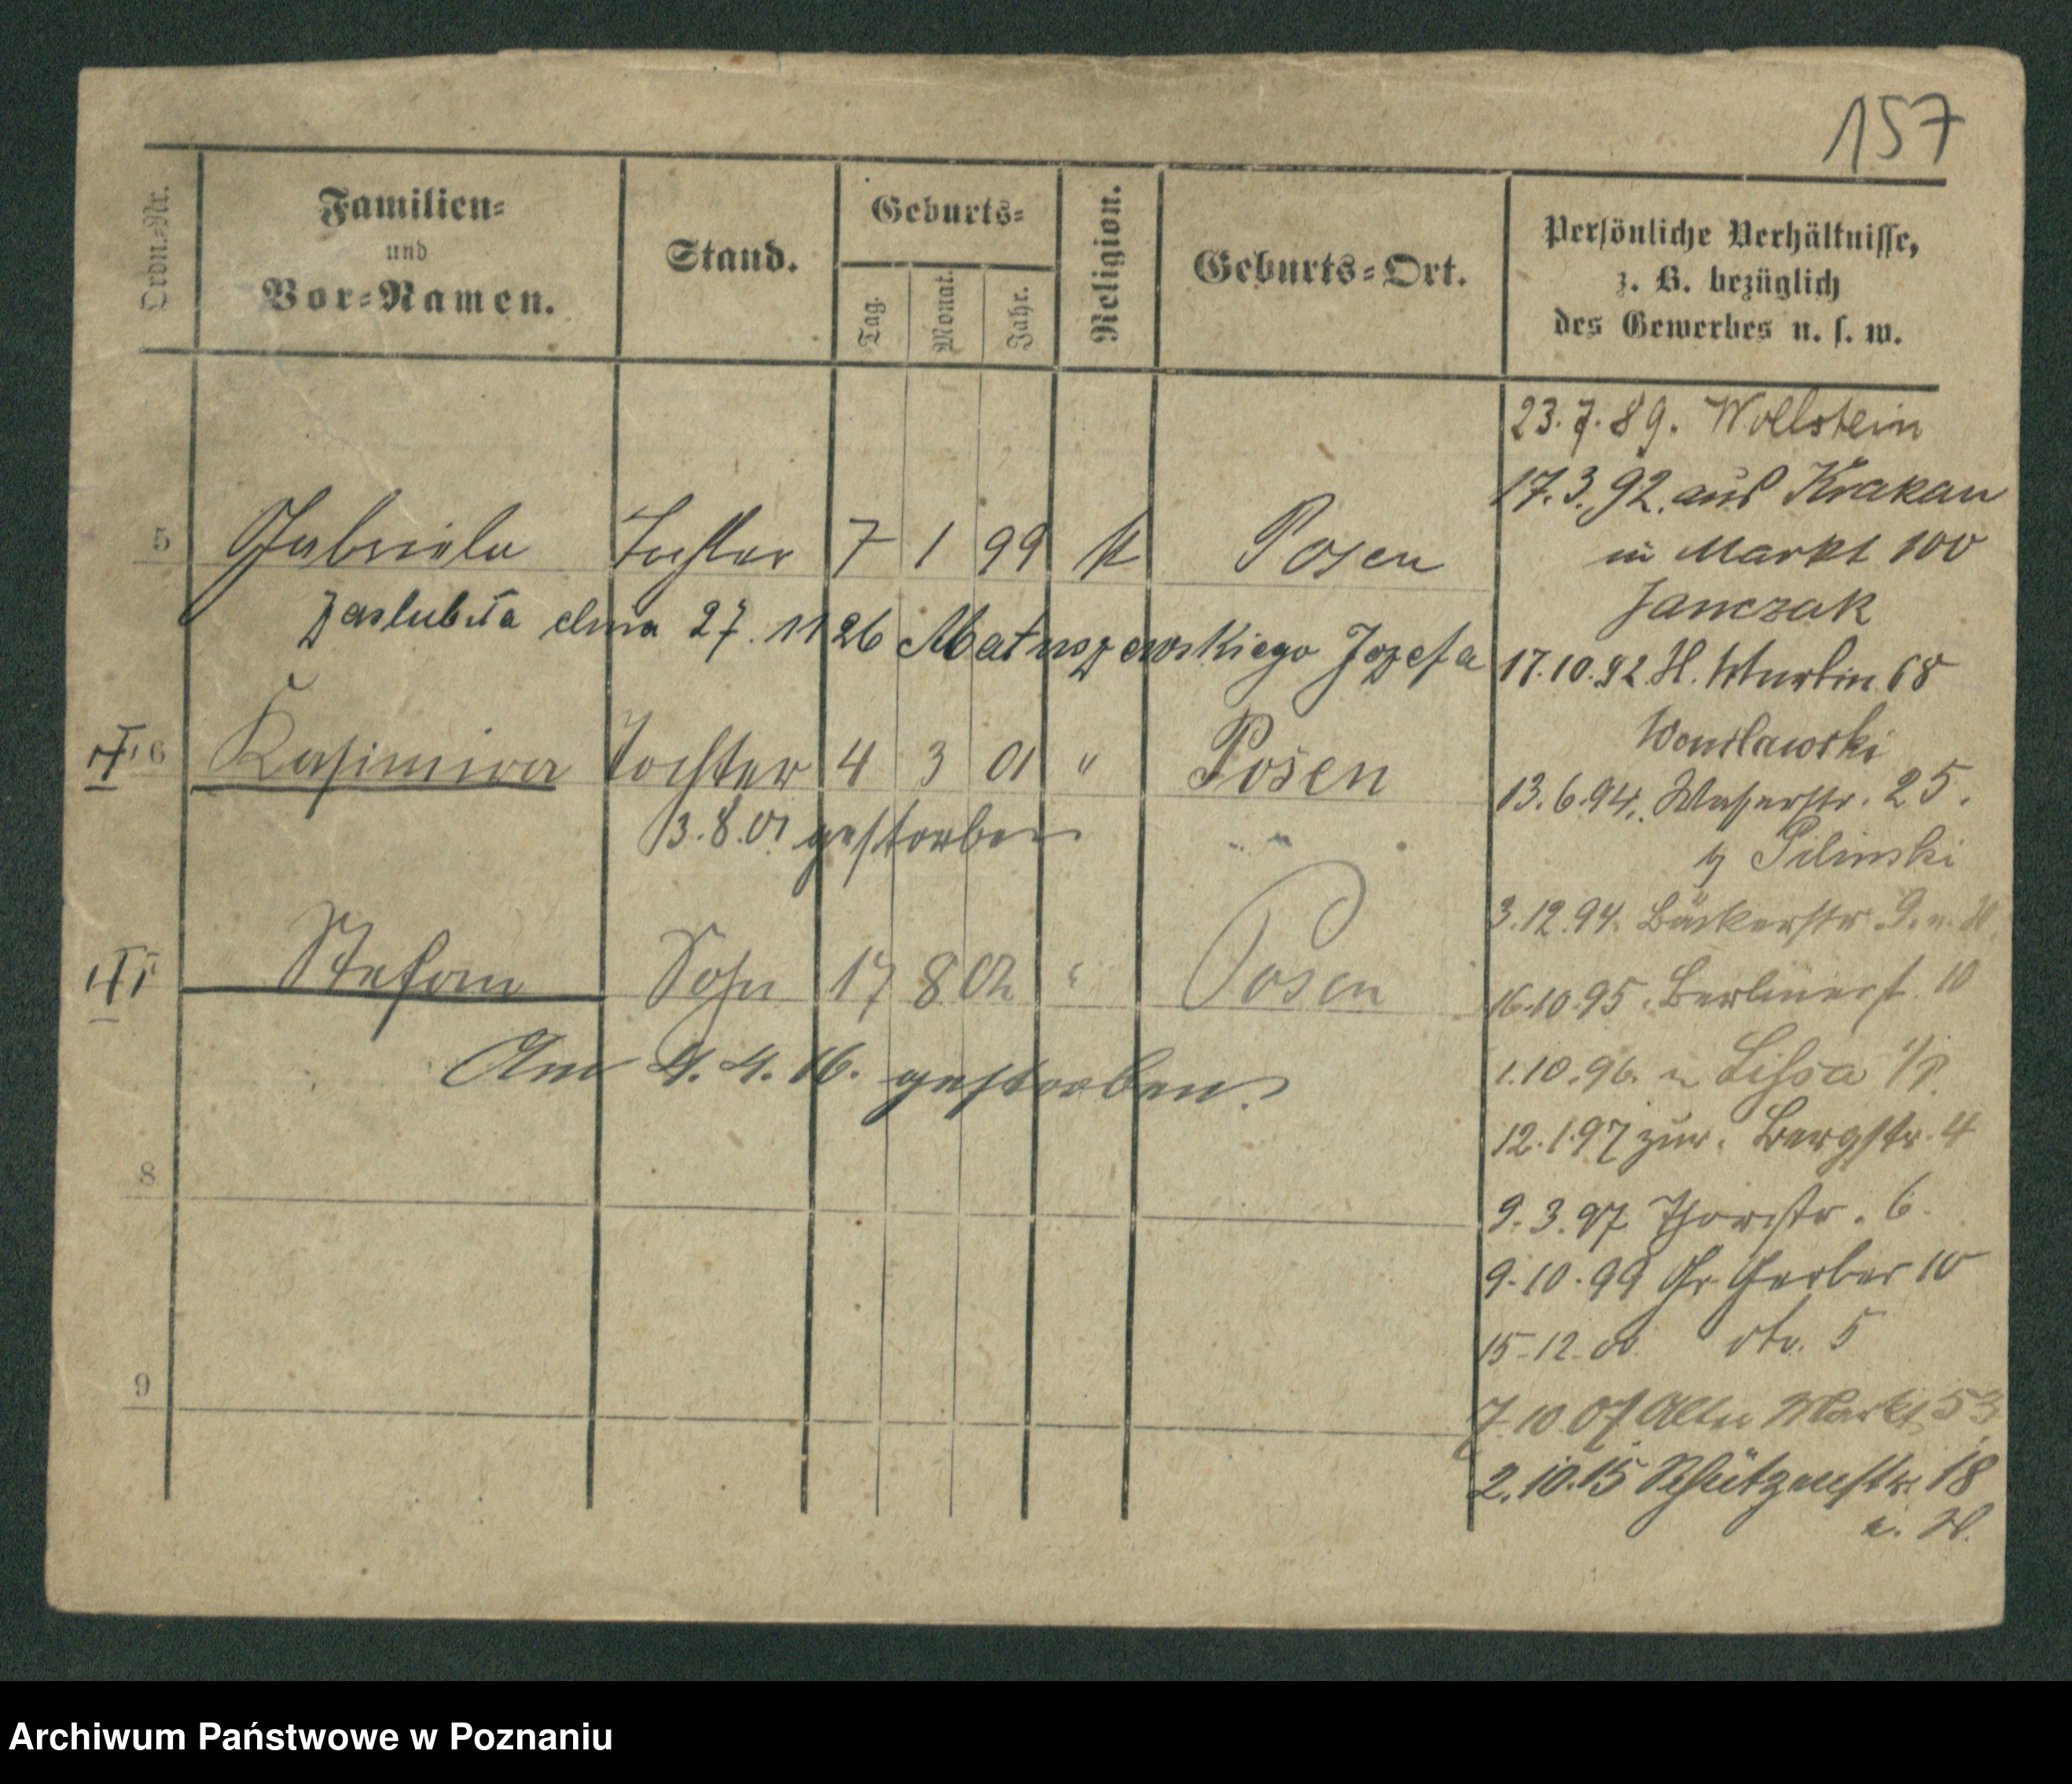 157
Ordn.-Nr.
Familien-
und
Vor-Namen.
Stand.
Geburts-
Tag.
Monat.
Jahr.
Religion.
Geburts-Ort.
Persönliche Verhältnisse,
z. B. bezüglich
des Gewerbes u. s. w.
5 Gabriela Tochter 7 1 99 k Posen
Zaslubiła dnia 27. 11 26 Matuszewskiego Jozefa
6 Kasimira Tochter 4 3 01 " Posen
3.8.01 gestorben
Stefan Sohn 17 8 02 " Posen
Am 4. 4. 16. gestorben.
8
9
23.7.89. Wollstein
17.3.92. aus Krakau
in Markt 100
Janczak
17.10.92 H. 68
13.6.94. Wasserstr. 25.
b Pilinski
3.12.94. Bäckerstr. 9.
16.10.95. Berlinerst. 10
1.10.96. n Lissa i/P.
12.1.97 zur. Bergstr. 4
9.3.97 Thorstr. 6.
9.10.99 Gr. Gerber 10
15-12-00 dto. 5
7.10.07 Alter Markt 53
2.10.15 Schützenstr. 18
Archiwum Państwowe w Poznaniu